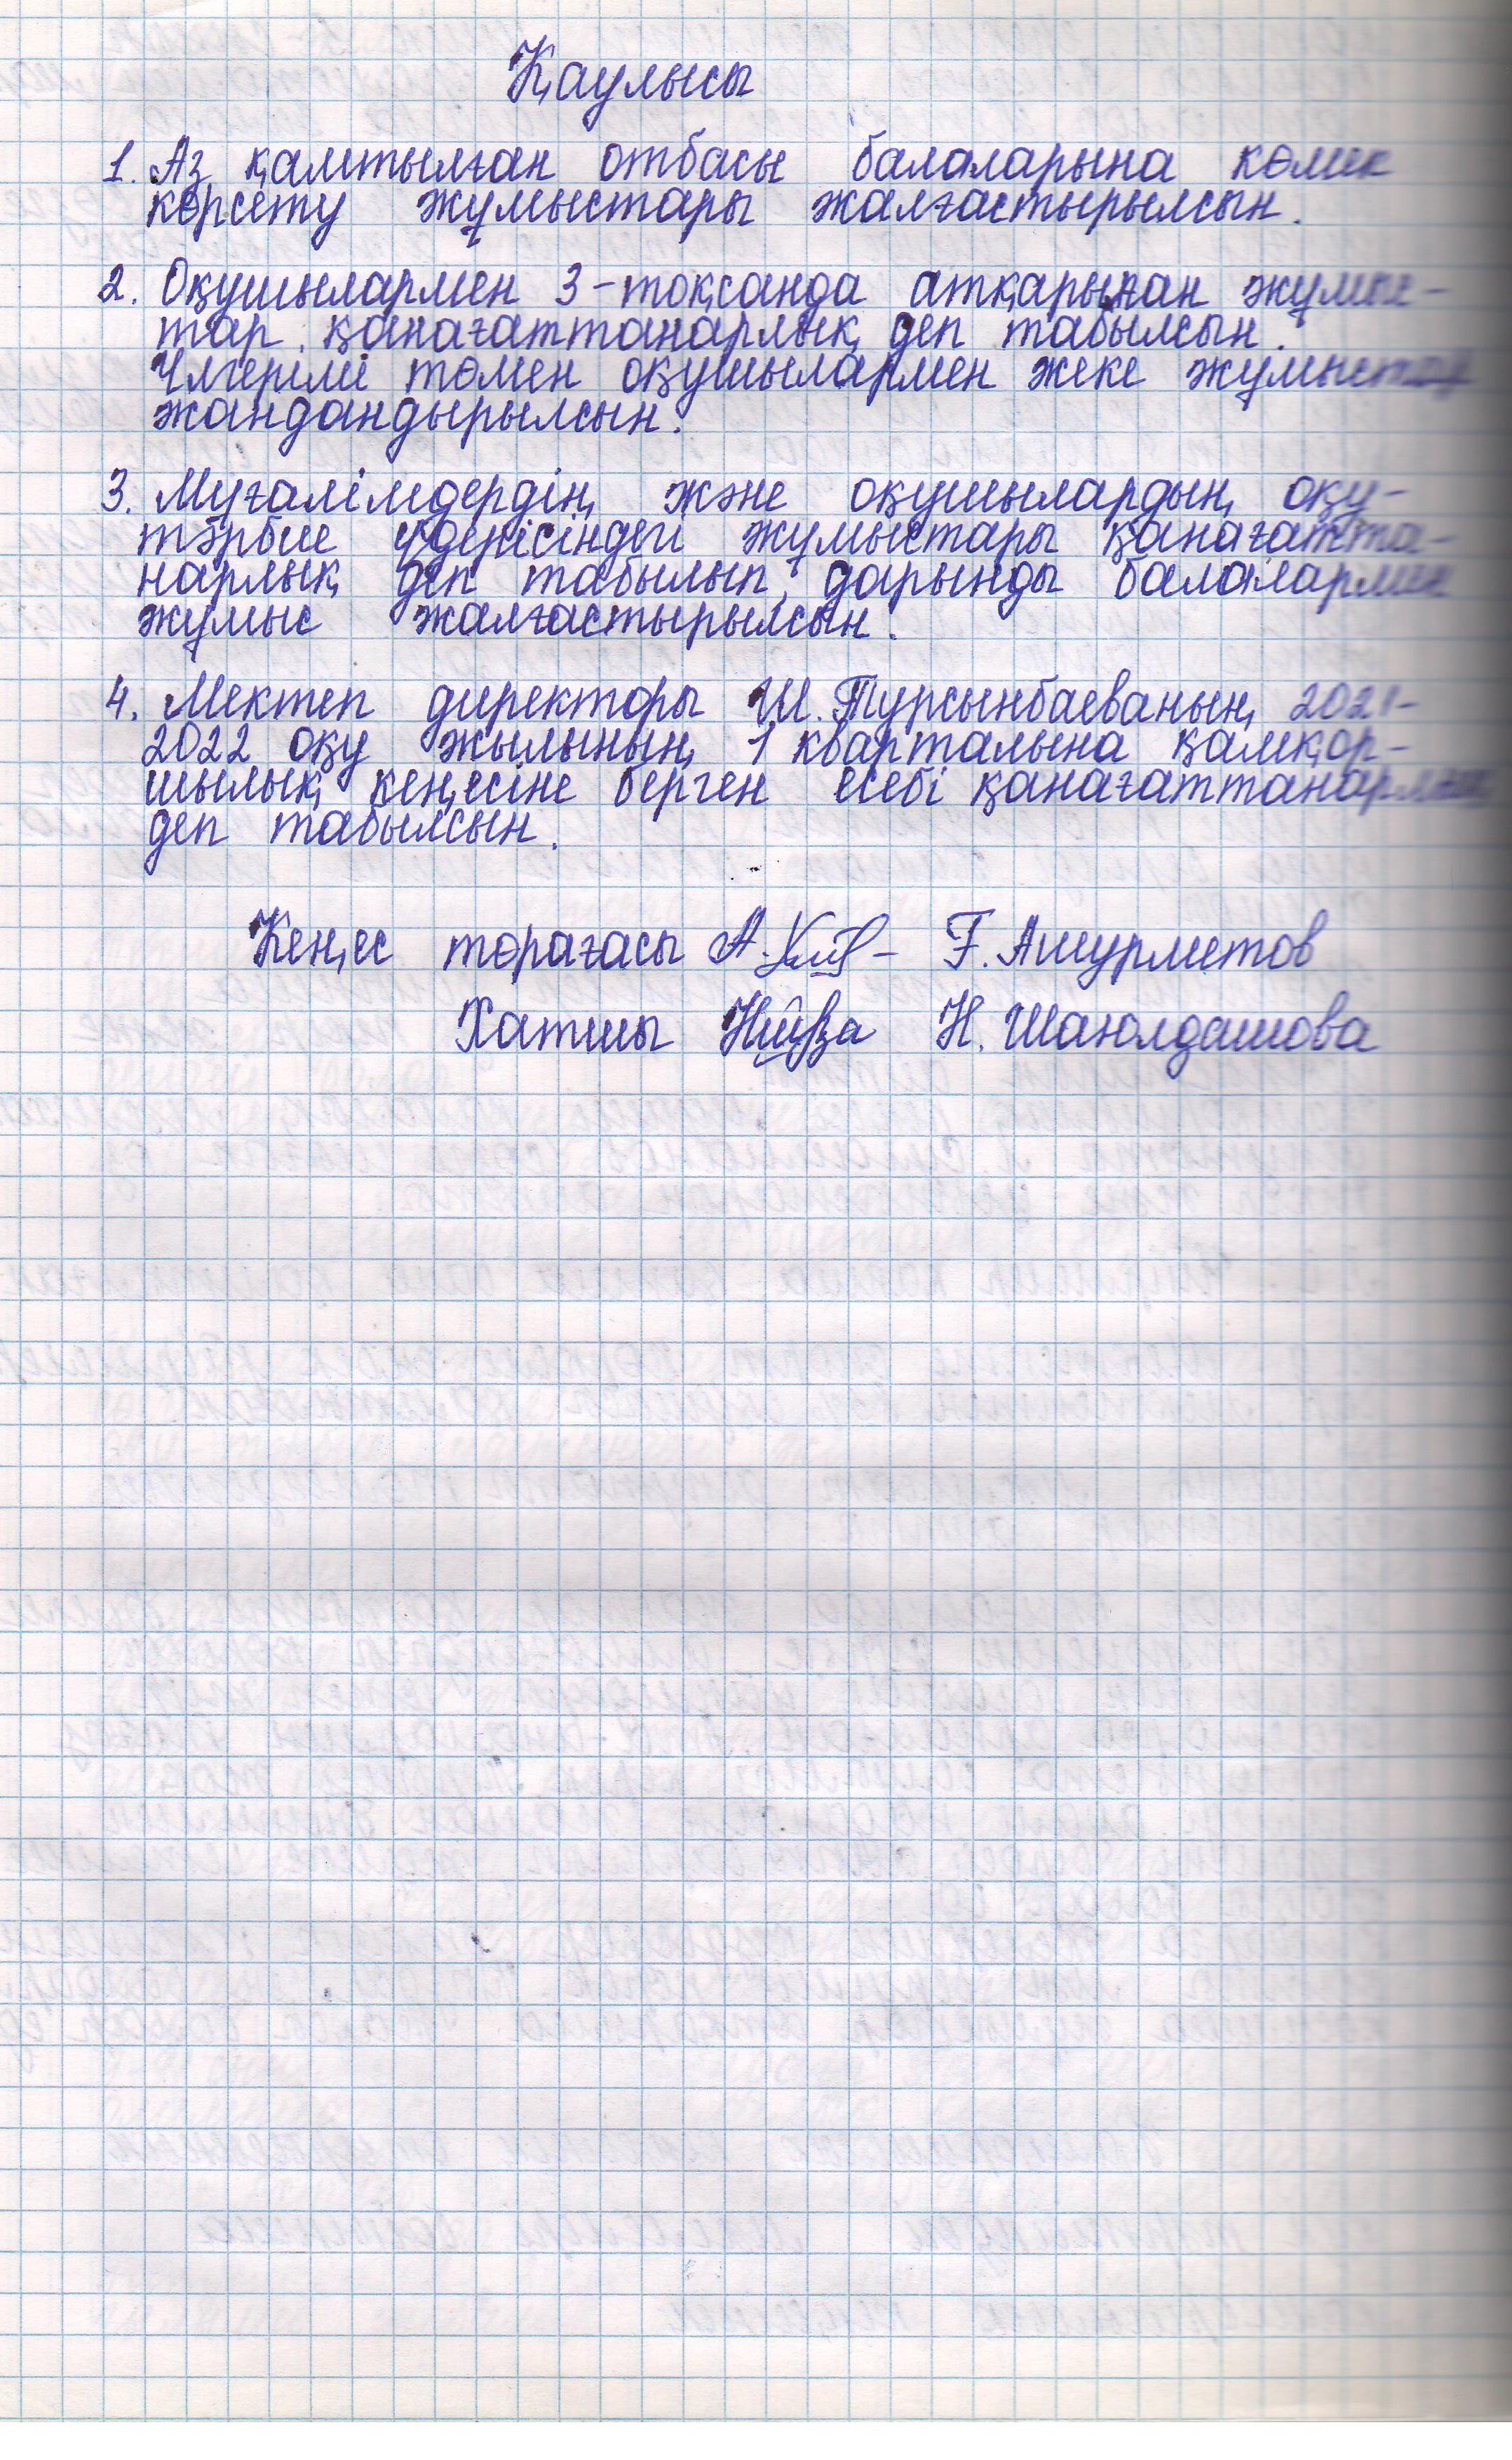 Қаулысы
1. Аз қамтылған отбасы балаларына көмек
көрсету жұмыстары жалғастырылсын.
2. Оқушылармен 3-тоқсанда атқарылған жұмыс-
тар қанағаттанарлық деп табылсын.
Үлгерімі төмен оқушылармен жеке жұмыстар
жандандырылсын.
3. Мұғалімдердің және оқушылардың оқу-
тәрбие үдерісіндегі жұмыстары қанағатта-
нарлық деп табылып, дарынды балалармен
жұмыс жалғастырылсын.
4. Мектеп директоры Ш. Турсынбаеваның 2021-
2022 оқу жылының 1 кварталына қамқор-
шылық кеңесіне берген есебі қанағаттанарлық
деп табылсын.
Кеңес төрағасы Ғ. Ашурметов
Хатшы Н. Шаюлдашова